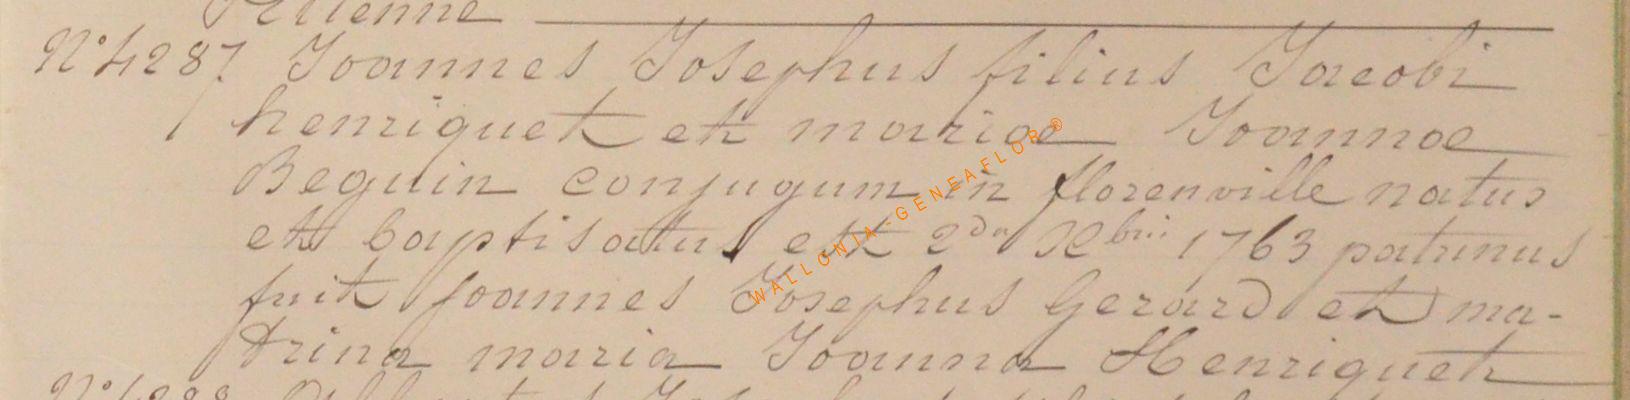 Etienne
N° 4287 Joannes Josephus filius Jacobi
henriquet et mariae Joannae
Beguin conjugum in florenville natus
et baptisatus est 2da Xbris 1763 patrinus
fuit Joannes Josephus Gerard et ma-
trina maria Joanna Henriquet
N° 4288
WALLONIA-GENEAFLOR®